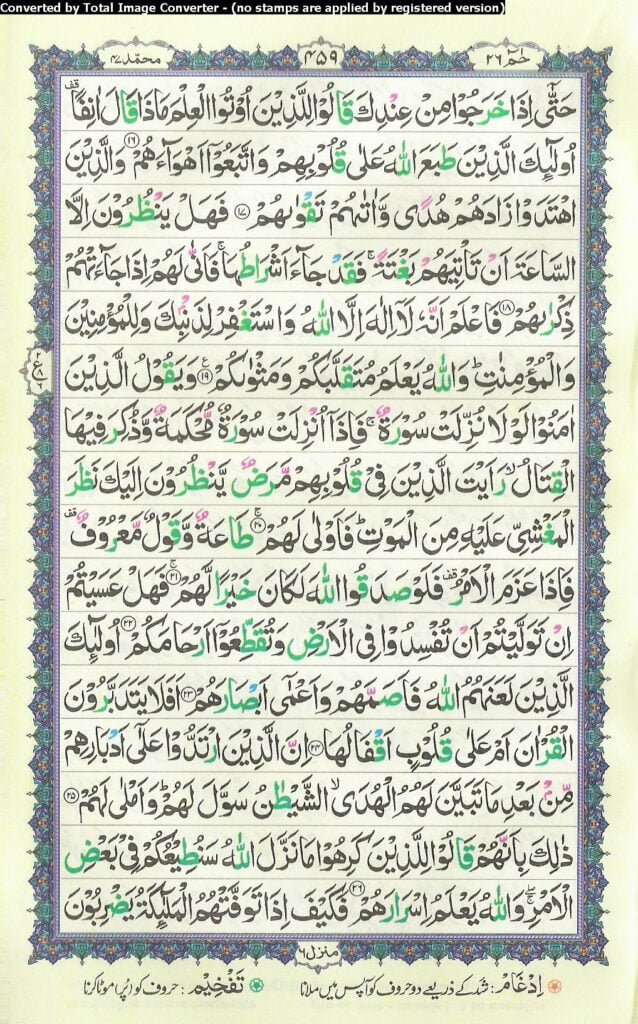 Converted by Total Image Converter - (no stamps are applied by registered version)
حٰمٓ ٢٦
٤٥٩
محمّد ٤٧
حَتّٰۤى اِذَا خَرَجُوْا مِنْ عِنْدِكَ قَالُوْا لِلَّذِيْنَ اُوْتُوا الْعِلْمَ مَاذَا قَالَ اٰنِفًا ۫
اُولٰٓئِكَ الَّذِيْنَ طَبَعَ اللّٰهُ عَلٰى قُلُوْبِهِمْ وَاتَّبَعُوْۤا اَهْوَآءَهُمْ ﴿۱۶﴾ وَالَّذِيْنَ
اهْتَدَوْا زَادَهُمْ هُدًى وَّاٰتٰىهُمْ تَقْوٰىهُمْ ﴿۱۷﴾ فَهَلْ يَنْظُرُوْنَ اِلَّا
السَّاعَةَ اَنْ تَاْتِيَهُمْ بَغْتَةً ۚ فَقَدْ جَآءَ اَشْرَاطُهَا ۚ فَاَنّٰى لَهُمْ اِذَا جَآءَتْهُمْ
ذِكْرٰىهُمْ ﴿۱۸﴾ فَاعْلَمْ اَنَّهٗ لَاۤ اِلٰهَ اِلَّا اللّٰهُ وَاسْتَغْفِرْ لِذَنْۢبِكَ وَلِلْمُؤْمِنِيْنَ
وَالْمُؤْمِنٰتِ ؕ وَاللّٰهُ يَعْلَمُ مُتَقَلَّبَكُمْ وَمَثْوٰىكُمْ ﴿۱۹﴾ وَيَقُوْلُ الَّذِيْنَ
اٰمَنُوْا لَوْلَا نُزِّلَتْ سُوْرَةٌ ۚ فَاِذَاۤ اُنْزِلَتْ سُوْرَةٌ مُّحْكَمَةٌ وَّذُكِرَ فِيْهَا
الْقِتَالُ ۙ رَاَيْتَ الَّذِيْنَ فِيْ قُلُوْبِهِمْ مَّرَضٌ يَّنْظُرُوْنَ اِلَيْكَ نَظَرَ
الْمَغْشِيِّ عَلَيْهِ مِنَ الْمَوْتِ ؕ فَاَوْلٰى لَهُمْ ﴿۲۰﴾ طَاعَةٌ وَّقَوْلٌ مَّعْرُوْفٌ ۫
فَاِذَا عَزَمَ الْاَمْرُ ۫ فَلَوْ صَدَقُوا اللّٰهَ لَكَانَ خَيْرًا لَّهُمْ ﴿۲۱﴾ فَهَلْ عَسَيْتُمْ
اِنْ تَوَلَّيْتُمْ اَنْ تُفْسِدُوْا فِى الْاَرْضِ وَتُقَطِّعُوْۤا اَرْحَامَكُمْ ﴿۲۲﴾ اُولٰٓئِكَ
الَّذِيْنَ لَعَنَهُمُ اللّٰهُ فَاَصَمَّهُمْ وَاَعْمٰۤى اَبْصَارَهُمْ ﴿۲۳﴾ اَفَلَا يَتَدَبَّرُوْنَ
الْقُرْاٰنَ اَمْ عَلٰى قُلُوْبٍ اَقْفَالُهَا ﴿۲۴﴾ اِنَّ الَّذِيْنَ ارْتَدُّوْا عَلٰۤى اَدْبَارِهِمْ
مِّنْۢ بَعْدِ مَا تَبَيَّنَ لَهُمُ الْهُدَى ۙ الشَّيْطٰنُ سَوَّلَ لَهُمْ ؕ وَاَمْلٰى لَهُمْ ﴿۲۵﴾
ذٰلِكَ بِاَنَّهُمْ قَالُوْا لِلَّذِيْنَ كَرِهُوْا مَا نَزَّلَ اللّٰهُ سَنُطِيْعُكُمْ فِيْ بَعْضِ
الْاَمْرِ ۚ وَاللّٰهُ يَعْلَمُ اِسْرَارَهُمْ ﴿۲۶﴾ فَكَيْفَ اِذَا تَوَفَّتْهُمُ الْمَلٰٓئِكَةُ يَضْرِبُوْنَ
منزل ٦
اِدْغَام: شد کے ذریعے دو حروف کو آپس میں ملانا
تَفْخِیْم: حروف کو (پُر) موٹا کرنا